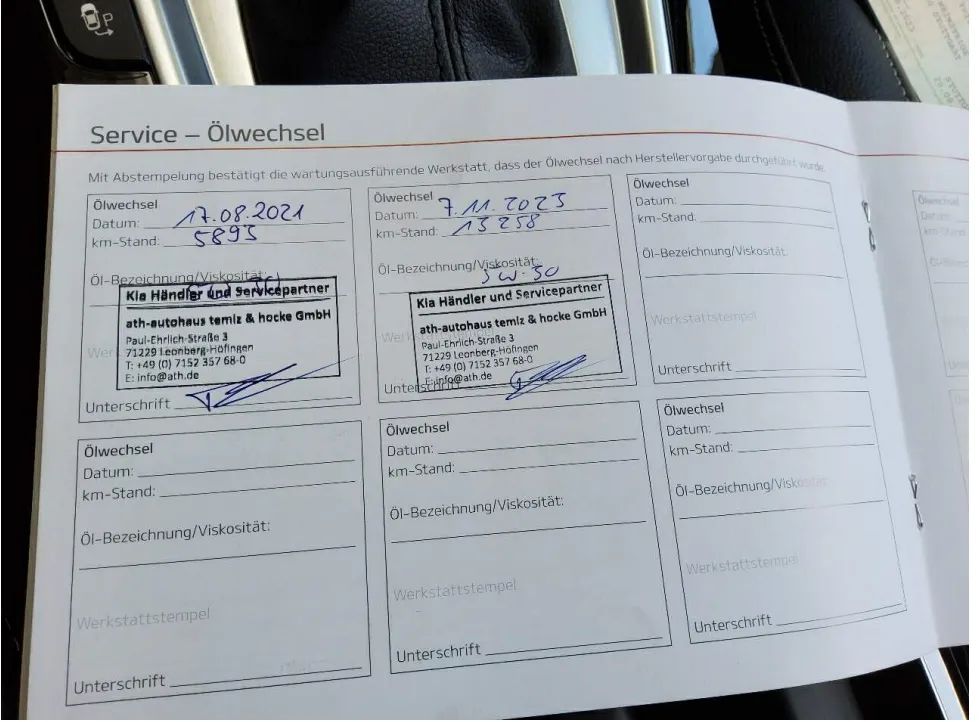 Service – Ölwechsel
Mit Abstempelung bestätigt die wartungsausführende Werkstatt, dass der Ölwechsel nach Herstellervorgabe durchgeführt wurde.
Ölwechsel
Datum: 17.08.2021
km-Stand: 5893
Öl-Bezeichnung/Viskosität:
Kia Händler und Servicepartner
ath-autohaus temiz & hocke GmbH
Paul-Ehrlich-Straße 3
71229 Leonberg-Höfingen
T: +49 (0) 7152 357 68-0
E: info@ath.de
Unterschrift
Ölwechsel
Datum: 7.11.2023
km-Stand: 13258
Öl-Bezeichnung/Viskosität:
5W-30
Kia Händler und Servicepartner
ath-autohaus temiz & hocke GmbH
Paul-Ehrlich-Straße 3
71229 Leonberg-Höfingen
T: +49 (0) 7152 357 68-0
E: info@ath.de
Unterschrift
Ölwechsel
Datum:
km-Stand:
Öl-Bezeichnung/Viskosität:
Werkstattstempel
Unterschrift
Ölwechsel
Datum:
km-Stand:
Öl-Bezeichnung/Viskosität:
Werkstattstempel
Unterschrift
Ölwechsel
Datum:
km-Stand:
Öl-Bezeichnung/Viskosität:
Werkstattstempel
Unterschrift
Ölwechsel
Datum:
km-Stand:
Öl-Bezeichnung/Viskosität:
Werkstattstempel
Unterschrift
P